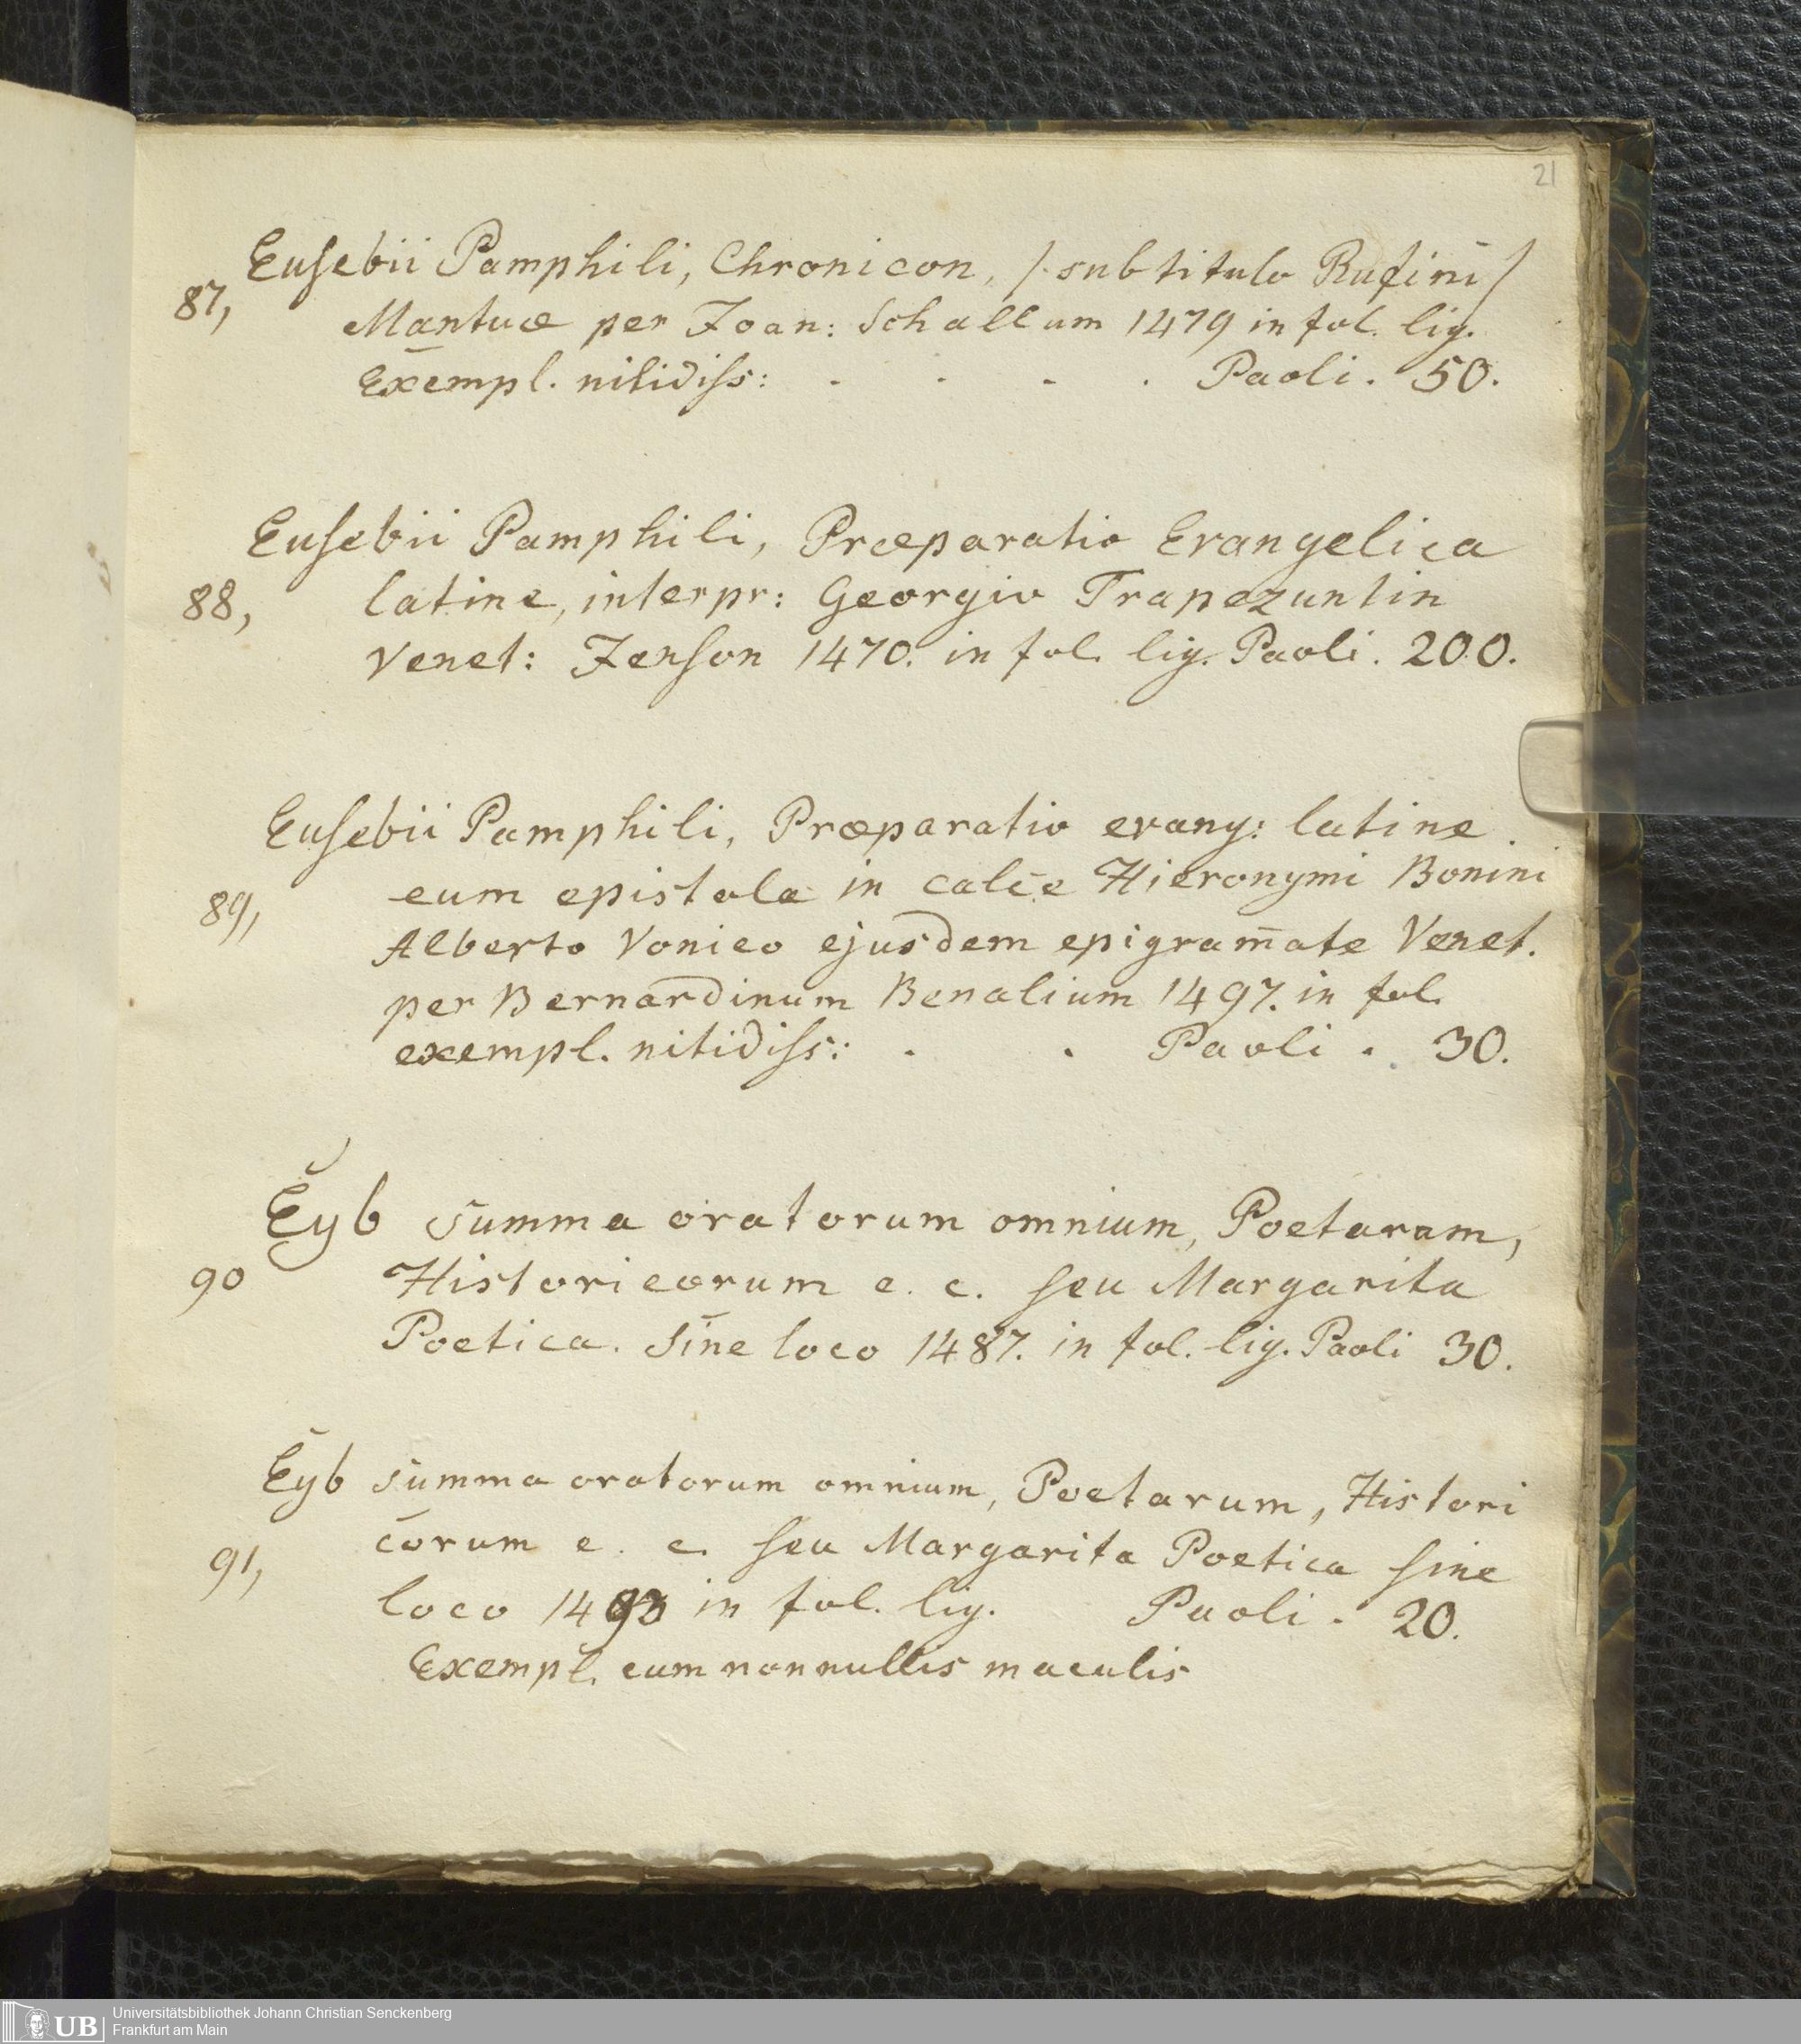 21
Eusebii Pamphili, Chronicon, /. subtitulo Rufini /
87, Mantuæ per Joan: Schallum 1479 in fol. lig.
Exempl. nitidiss: . . . . Paoli. 50.
Eusebii Pamphili, Præparatio Evangelica
88, latine, interpr: Georgio Trapezuntin
Venet: Jenson 1470. in fol. lig. Paoli. 200.
Eusebii Pamphili, Præparatio evang: latine
89, cum epistola in calce Hieronymi Bonini
Alberto Vonico ejusdem epigram̄ate Venet.
per Bernardinum Benalium 1497. in fol.
exempl. nitidiss: . . Paoli . 30.
Eyb summa oratorum omnium, Poetarum,
90 Historicorum e. c. seu Margarita
Poetica. Sine loco 1487. in fol. lig. Paoli 30.
Eyb summa oratorum omnium, Poetarum, Histori
91, corum e. c. seu Margarita Poetica sine
loco 1493 in fol. lig. Paoli. 20.
Exempl. cum nonnullis maculis
UB
Universitätsbibliothek Johann Christian Senckenberg
Frankfurt am Main